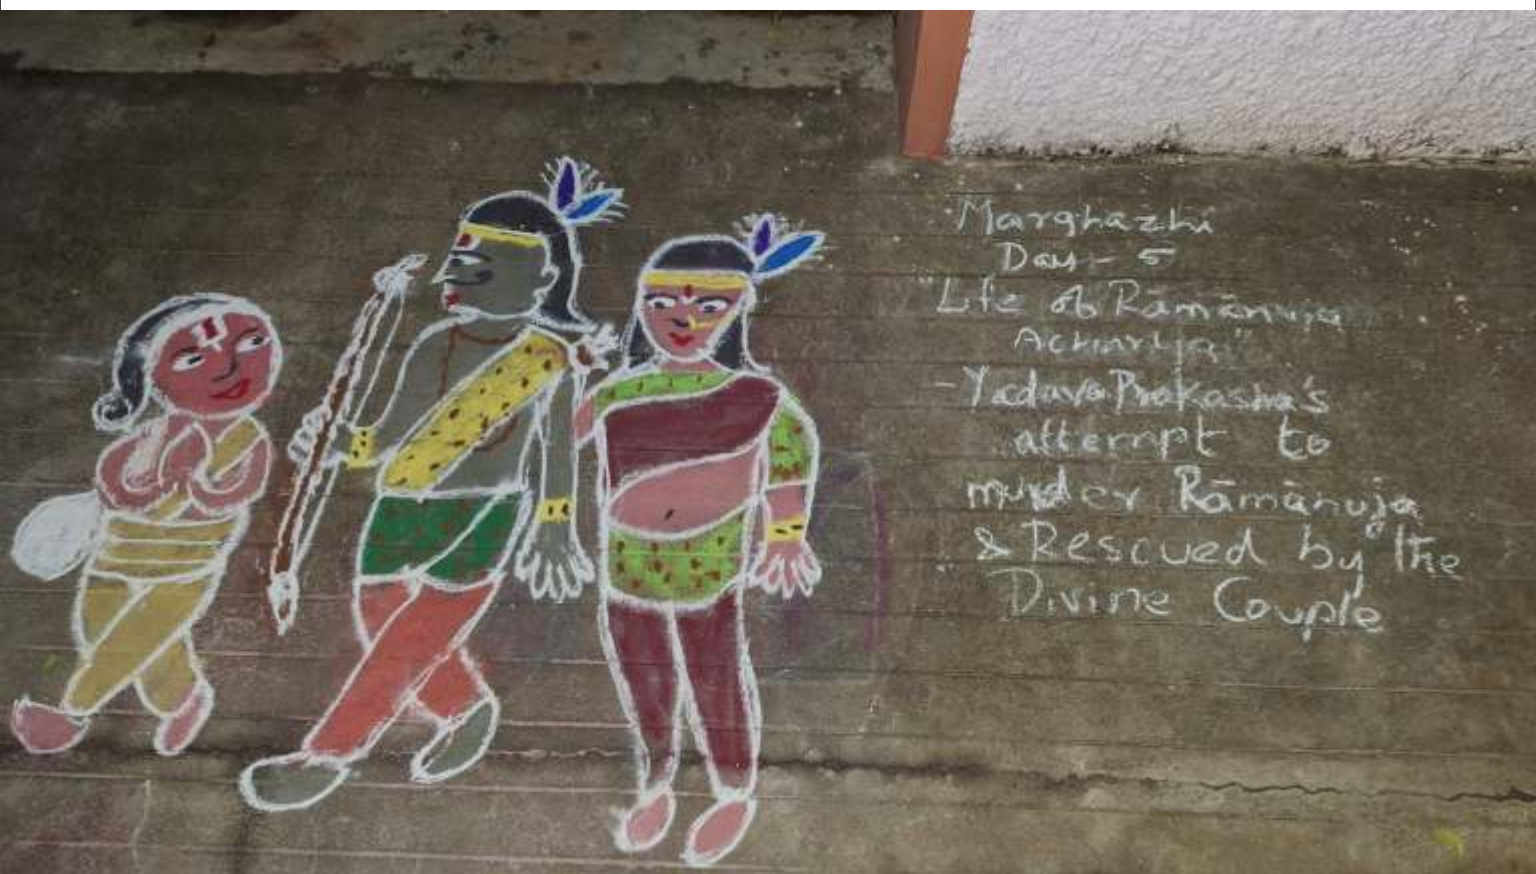 Marghazhi
Day - 5
"Life of Rāmānuja
Acharya"
- Yadava Prakasha's
attempt to
murder Rāmānuja
& Rescued by "The
Divine Couple